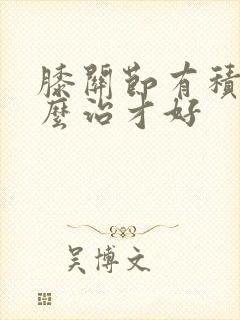 膝關節有積
麼治才好
吴博文